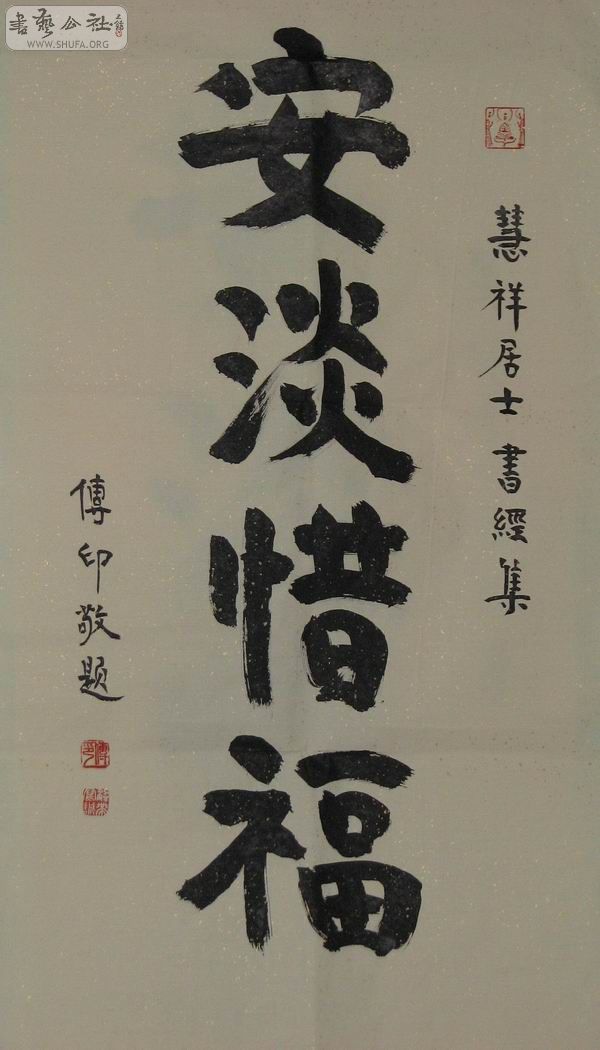 書藝公社
WWW.SHUFA.ORG
慧祥居士書經集
安淡惜福
傳印敬题